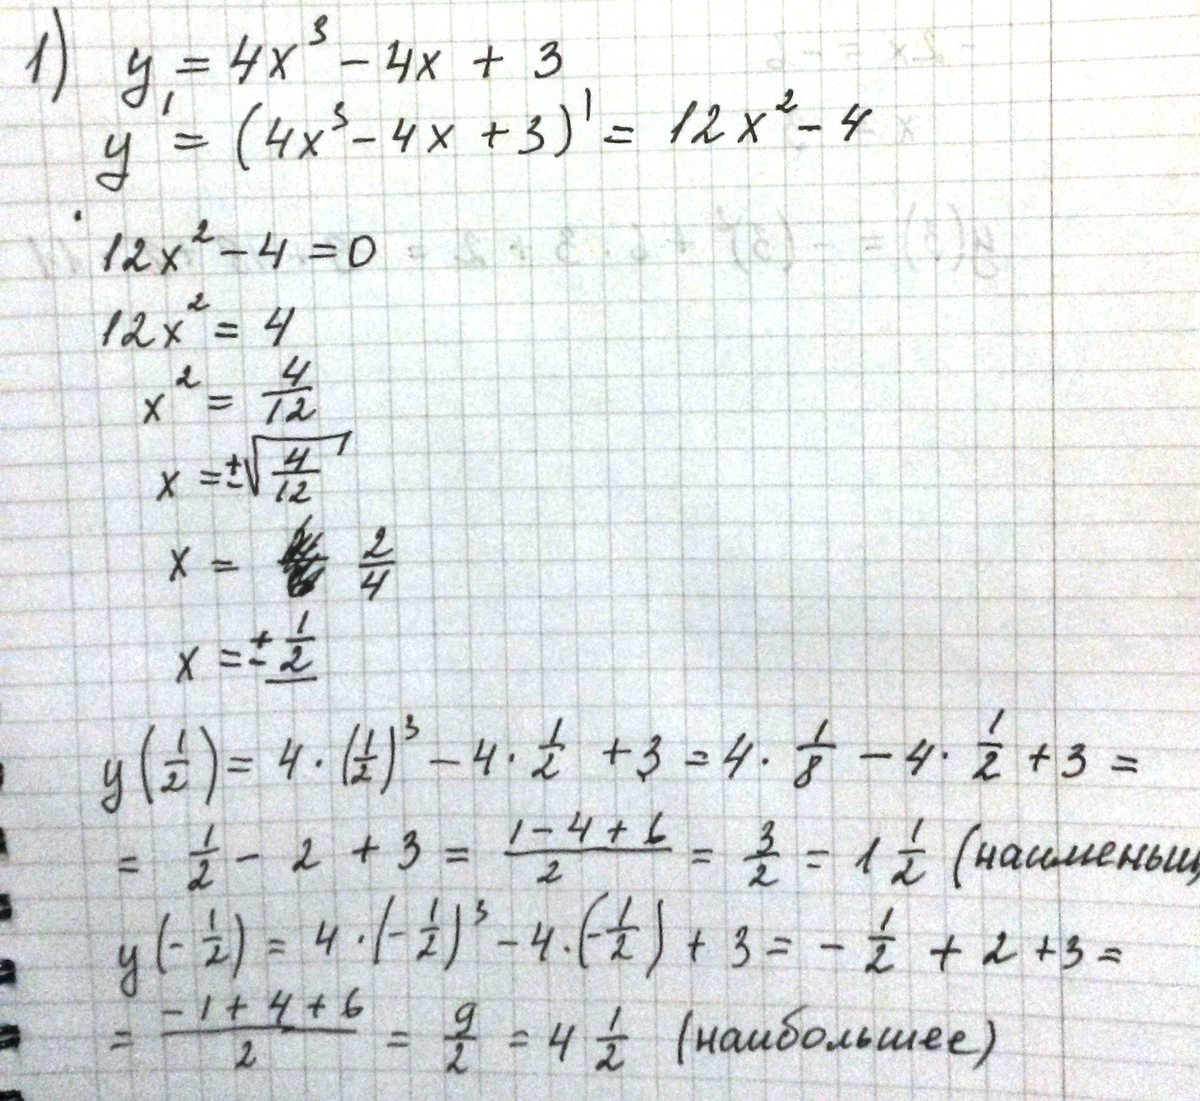 1) y = 4x³ - 4x + 3
y' = (4x³ - 4x + 3)' = 12x² - 4
12x² - 4 = 0
12x² = 4
x² = 4/12
x = ±√(4/12)
x = 2/4
x = ± 1/2
y(1/2) = 4 · (1/2)³ - 4 · 1/2 + 3 = 4 · 1/8 - 4 · 1/2 + 3 =
= 1/2 - 2 + 3 = (1 - 4 + 6)/2 = 3/2 = 1 1/2 (наименьш
y(- 1/2) = 4 · (- 1/2)³ - 4 · (- 1/2) + 3 = - 1/2 + 2 + 3 =
= (-1 + 4 + 6)/2 = 9/2 = 4 1/2 (наибольшее)